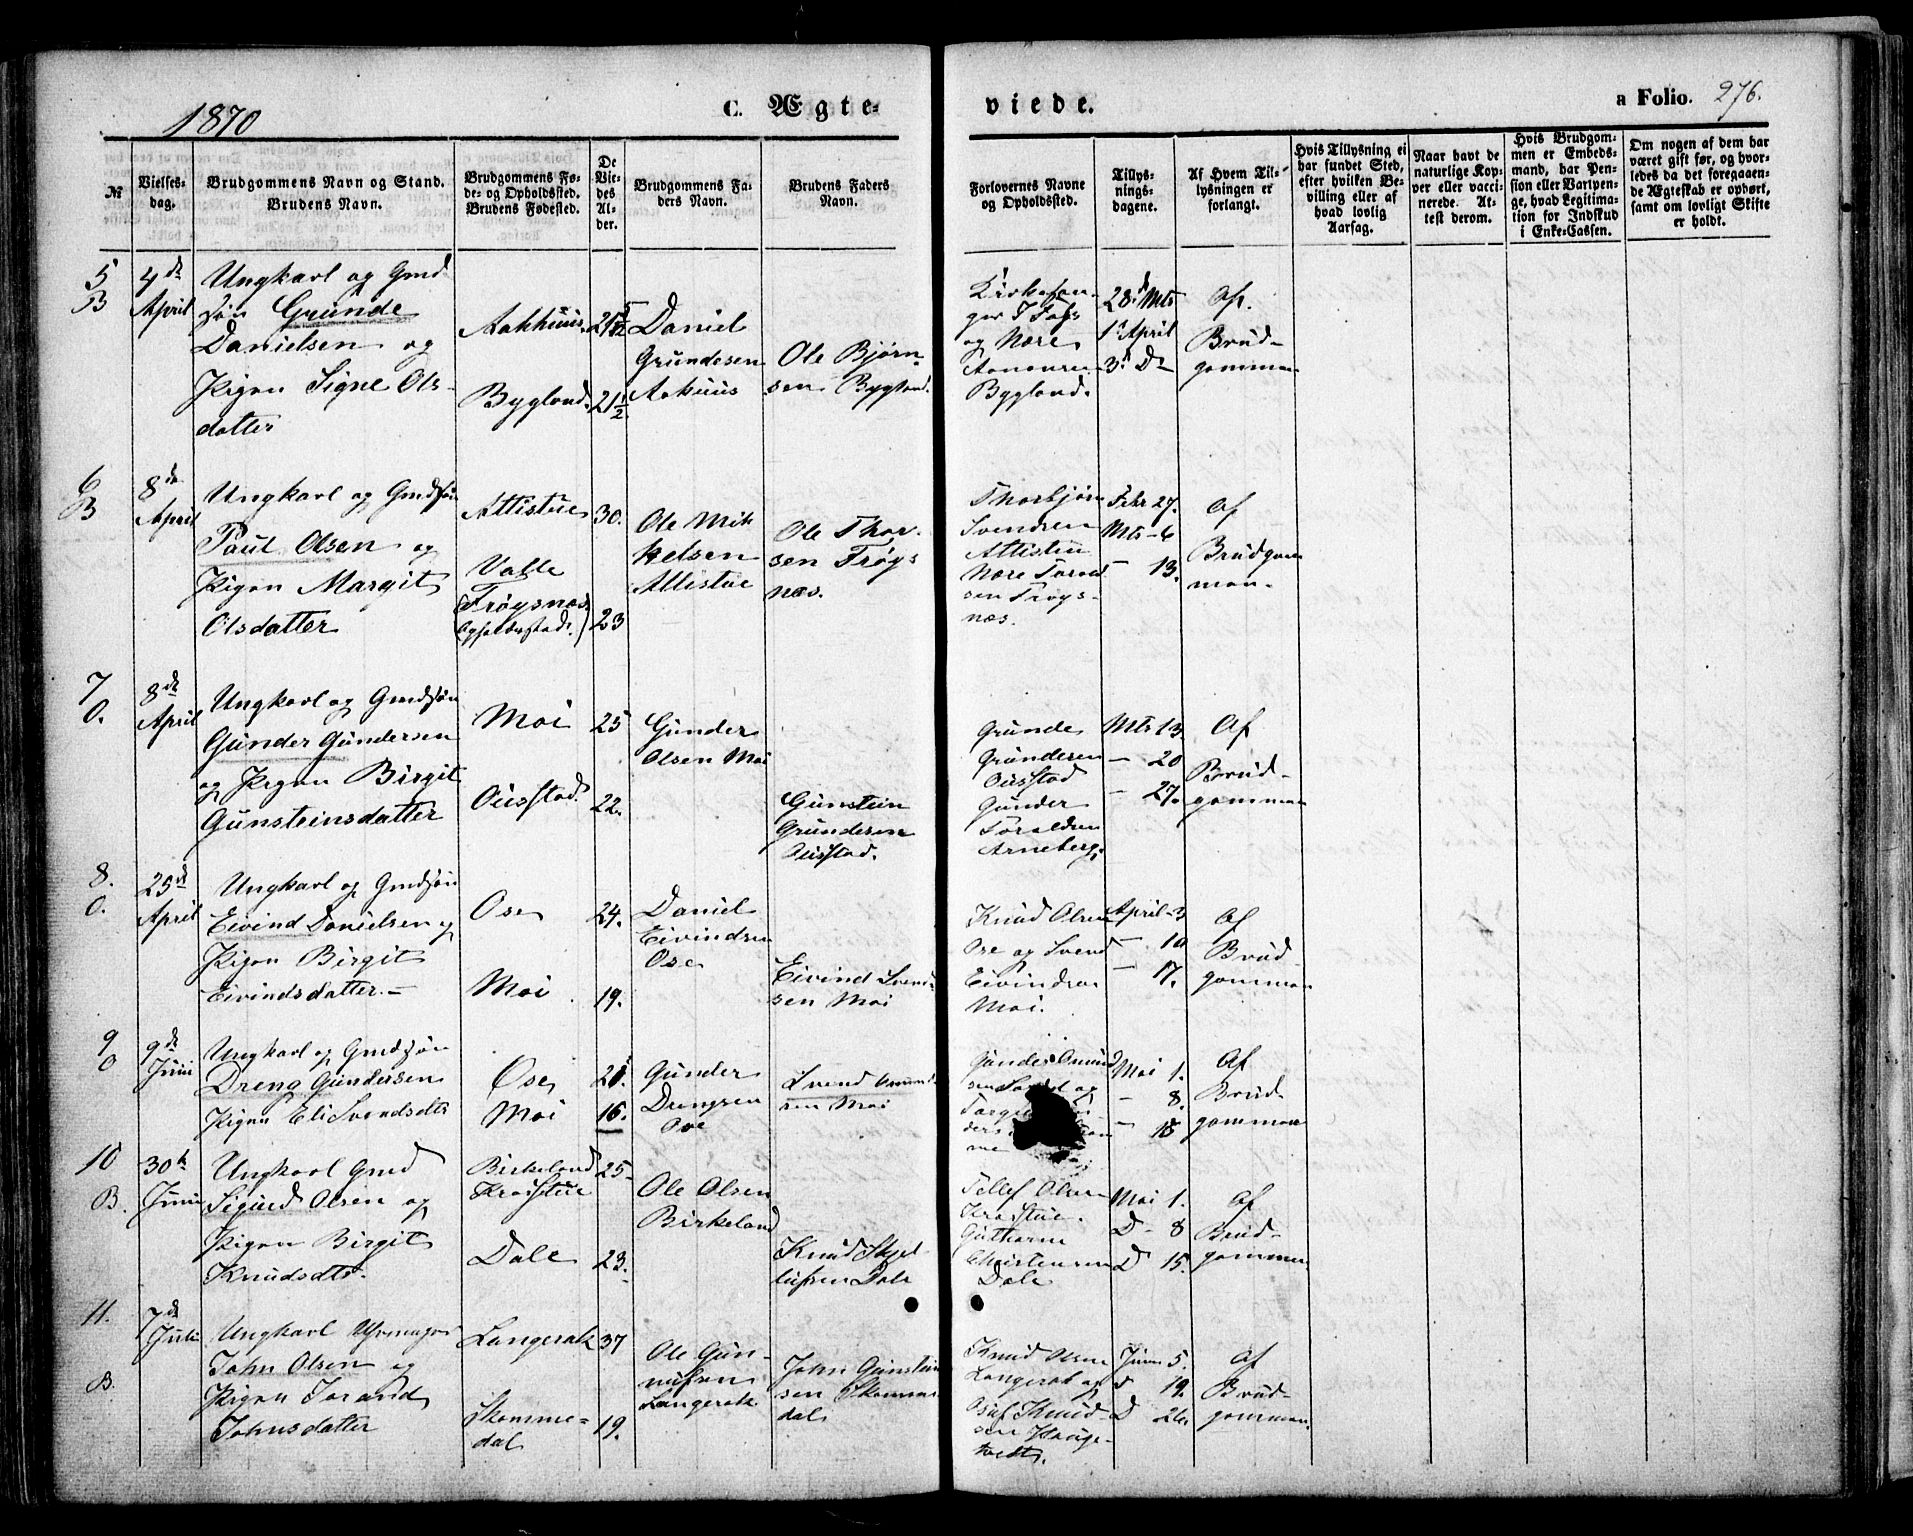 1870
C. Ægte-
viede.
a Folio. 276.
№
Vielses-
dag.
Brudgommens Navn og Stand.
Brudens Navn.
Brudgommens Fø-
de- og Opholdssted.
Brudens Fødested.
De
Vie-
des
Al-
der.
Brudgommens Fa-
ders Navn.
Brudens Faders
Navn.
Forlovernes Navne
og Opholdssted.
Tillys-
nings-
dagene.
Af Hvem Til-
lysningen er
forlangt.
Hvis Tillysning ei
har fundet Sted,
efter hvilken Be-
villing eller af
hvad lovlig
Aarsag.
Naar havt de
naturlige Kop-
per eller vacci-
nerede. At-
test derom.
Hvis Brudgom-
men er Embeds-
mand, har Pen-
sion eller Vartpen-
ge, hvad Legitima-
tion for Indskud
i Enke-Cassen.
Om nogen af dem har
været gift før, og hvor-
ledes da det foregaaen-
de Ægteskab er ophørt,
samt om lovligt Skifte
er holdt.
5
B
4de
April
Ungkarl og Gmd
søn Grunde
Danielsen og
Pigen Signe Ols-
datter
Aakhuus.
Bygland.
21 5/12
21 1/2
Daniel
Grundesen
Aakuus
Ole Bjørn-
sen Bygland.
Kirkesan-
ger
og Nære
Aanonsen
Bygland.
28d Mts
1st April
3d D
Af
Brud-
gommen
6
B
8de
April
Ungkarl og Gmdsøn
Paul Olsen og
Pigen Margit
Olsdatter
Attistue
Valle
(Frøysnæs.
Opholdsstad.)
30.
23
Ole Mik
kelsen
Attistue
Ole Thor-
sen Frøys
næs.
Thorbjørn
Svendsen
Attistue
Nære Torvds
sen Frøys-
næs.
Febr 27.
Mts - 6
- 13.
Af
Brudgom
men-
7
O.
8de
April
Ungkarl og Gmdsøn
Gunder Gundersen
og Pigen Birgit
Gunsteinsdatter
Moi
Ousstad.
25
22.
Gunder
Olsen Moi
Gunstein
Grundesen
Ousstad.
Grunde
Grundesen
Ousstad
Gunder
Toraldsen
Arneberg.
Mts 13.
- 20
- 27.
Af
Brud-
gommen
8.
O.
25de
April
Ungkarl og Gmdsøn
Eivind Danielsen og
Pigen Birgit
Eivindsdatter.-
Ose
Moi
24.
19.
Daniel
Eivindsen
Ose
Eivind Svend-
sen Moi
Knud Olsen
Ose og Svend
Eivindsen
Moi.
April - 3
- 10
- 17.
Af
Brud
gommen
9
O
9de
Juni
Ungkarl og Gmdsøn
Dreng Gundersen
Pigen Eli Svendsdtr
Ose
Moi
16.
Gunder
Drengsen
Ose
Svend Omund-
sen Moi
Gunder Omund
Mai 1.
- 8.
- 15
Af
Brud
gommen
10
B.
30te
Juni
Ungkarl Gmd
Sigurd Olsen og
Pigen Birgit
Knudsdtr.
Birkeland
Kroistue
Dale
25
23.
Ole Olsen
Birkeland
Knud Skjel-
lufsen Dale
Tellef Olsen
Kroistue.
Guthorm
Christensen
Dale
Mai 1.
D - 8
D 15.
Af
Brud-
gommen
11.
B.
7de
Juli
Ungkarl Uhrmager
John Olsen og
Pigen Torand
Johnsdatter
Langerak
Skomme-
dal
37
19.
Ole Gun-
nufsen
Langerak
John Gunstein
sen Skomme
dal
Knud Olsen
Langerak og
Osuf Knud-
sen Hauge-
tvedt.
Juni 5.
d 19.
D 26.
Af
Brud-
gommen.